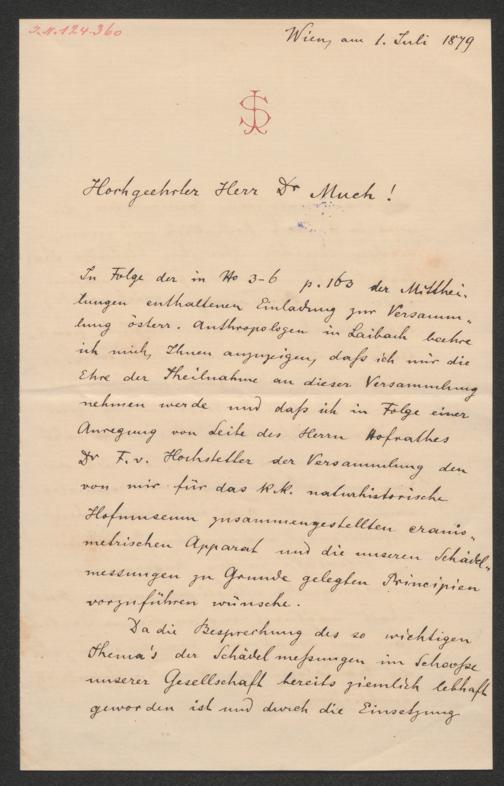 J.N. 124.360
Wien, am 1. Juli 1879
JS
Hochgeehrter Herr Dr Much!
In Folge der in No 3-6 p. 163 der Mitthei-
lungen enthaltenen Einladung zur Versamm-
lung österr. Anthropologen in Laibach beehre
ich mich, Ihnen anzuzeigen, daß ich mir die
Ehre der Theilnahme an dieser Versammlung
nehmen werde und daß ich in Folge einer
Anregung von Seite des Herrn Hofrathes
Dr F. v. Hochstetter der Versammlung den
von mir für das k.k. naturhistorische
Hofmuseum zusammengestellten cranio-
metrischen Apparat und die unseren Schädel-
messungen zu Grunde gelegten Principien
vorzuführen wünsche.
Da die Besprechung des so wichtigen
Thema's der Schädelmeßungen im Schooße
unserer Gesellschaft bereits ziemlich lebhaft
geworden ist und durch die Einsetzung